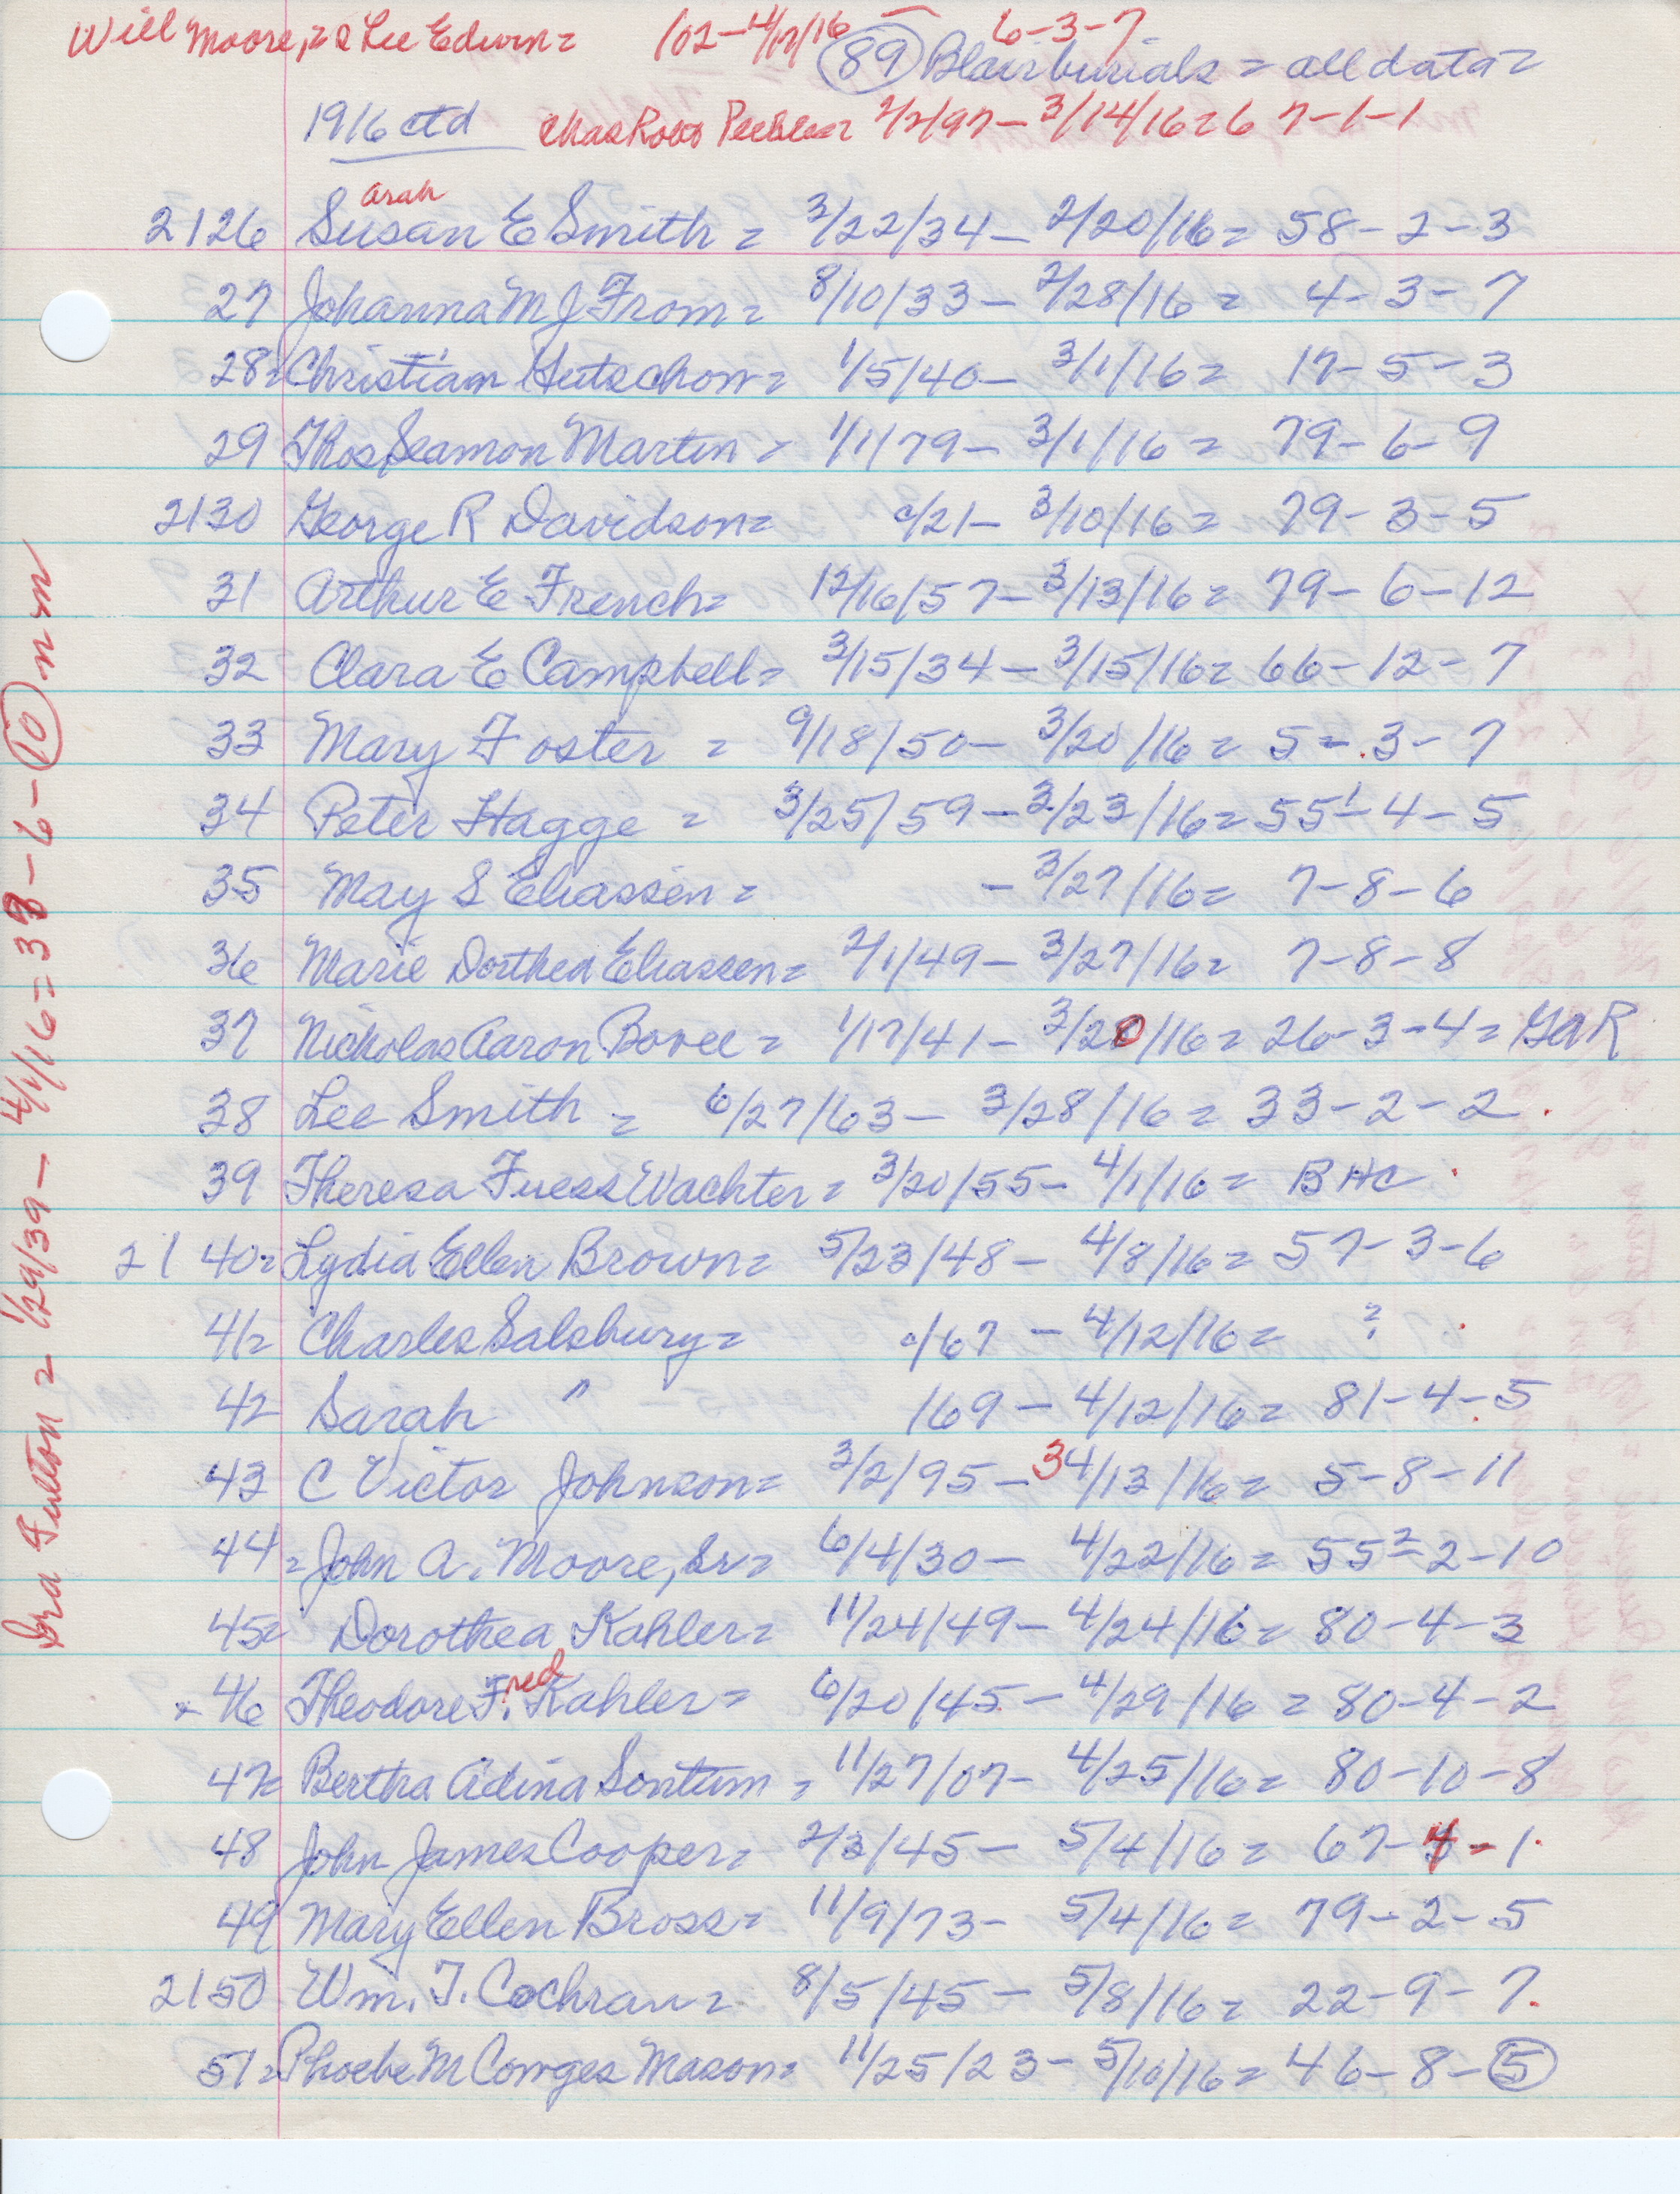 Will Moore, = Lee Edwin = /02 - 4/12/16 = 6-3-7
(89) Blair burials = all data =
1916 ctd Chas Ross Peebles = 2/2/97 - 3/14/16 = 67-1-1
arah
2126 Susan E Smith = 3/22/34 - 2/20/16 = 58-2-3
27 Johanna M J From = 8/10/33 - 2/28/16 = 4-3-7
28 = Christian Hutschow = 1/5/40 - 3/1/16 = 17-5-3
29 Thos Seamon Martin = 1/1/79 - 3/1/16 = 79-6-9
2130 George R Davidson = c/21 - 3/10/16 = 79-3-5
31 Arthur E French = 12/16/57 - 3/13/16 = 79-6-12
32 Clara E Campbell = 3/15/34 - 3/15/16 = 66-12-7
33 Mary Foster = 9/18/50 - 3/20/16 = 5-3-7
34 Peter Hagge = 3/25/59 - 3/23/16 = 55¹-4-5
35 May S Eliassen = - 3/27/16 = 7-8-6
36 Marie Dorthea Eliassen = 2/1/49 - 3/27/16 = 7-8-8
37 Nickolas Aaron Bovee = 1/17/41 - 3/20/16 = 26-3-4 = GAR
38 Lee Smith = 6/27/63 - 3/28/16 = 33-2-2
39 Theresa Fuess Wachter = 3/20/55 - 4/1/16 = BHC
2140 = Lydia Ellen Brown = 5/23/48 - 4/8/16 = 57-3-6
41 = Charles Salsbury = c/67 - 4/12/16 = ?
42 Sarah " /69 - 4/12/16 = 81-4-5
43 C Victor Johnson = 3/2/95 - 3 4/13/16 = 5-8-11
44 = John A. Moore, Sr = 6/4/30 - 4/22/16 = 55²-2-10
45 = Dorothea Kahler = 11/24/49 - 4/24/16 = 80-4-3
red
x 46 Theodore F. Kahler = 6/20/45 - 4/29/16 = 80-4-2
47 = Bertha Adina Sontum = 11/27/07 - 4/25/16 = 80-10-8
48 John James Cooper = 2/3/45 - 5/4/16 = 67-4-1
49 Mary Ellen Bross = 11/9/73 - 5/4/16 = 79-2-5
2150 Wm. T. Cochran = 8/5/45 - 5/8/16 = 22-9-7
51 = Phoebe M Conges Mason = 11/25/23 - 5/10/16 = 46-8-(5)
Ira Fulton = 1/29/39 - 4/1/16 = 38-6-(10) n m